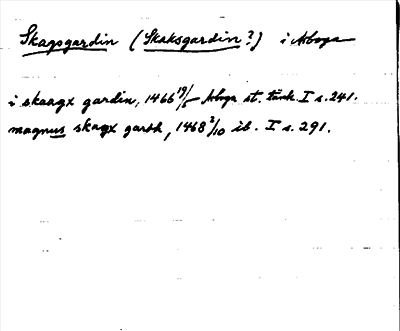 Skagsgardin (Skaksgardin?) i Arboga
i skaagx gardin, 1466 19/5 Arboga st. tänk. I s. 241.
magnus skagx garth, 1468 2/10 ib. I s. 291.